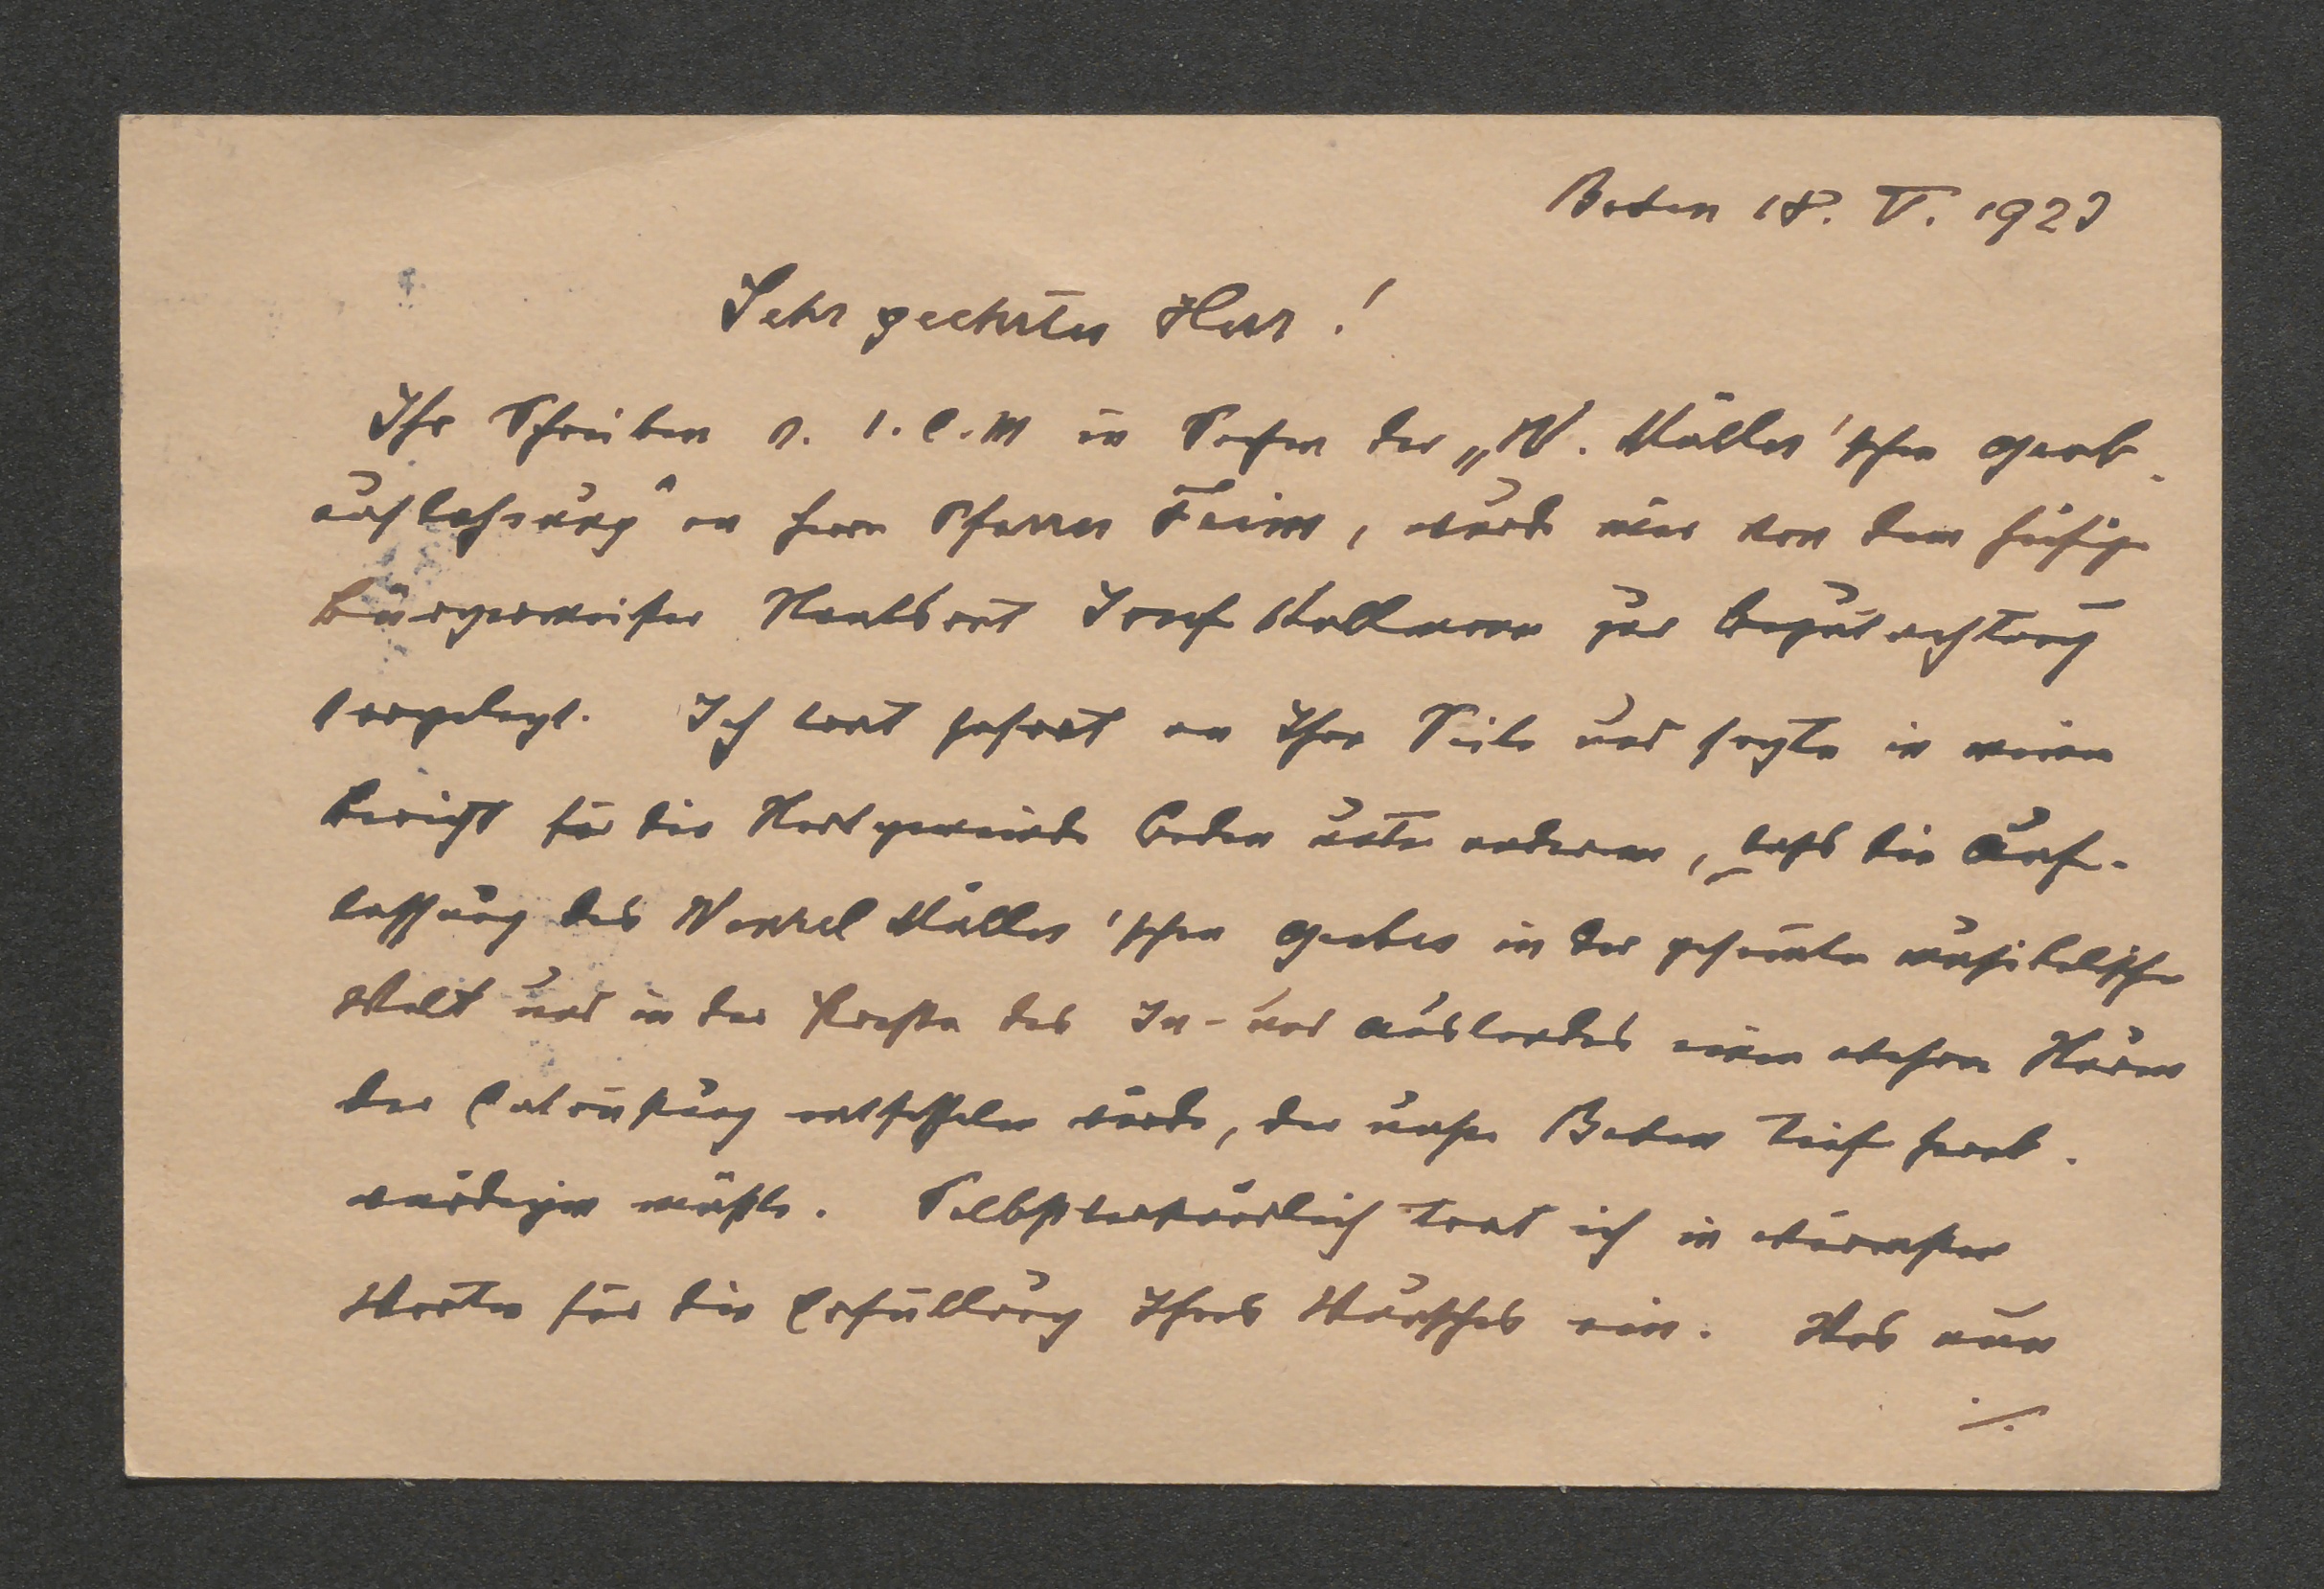 Baden 18. V. 1929
Sehr geehrter Herr!
Ihr Schreiben v. 1. l. M in Sachen der „W. Müller'schen Grab-
auflassung" an Herrn Pfarrer Feim, wurde mir von dem hiesigen
Bürgermeister Nat.Rat Josef Kollmann zur Begutachtung
vorgelegt. Ich trat sofort an Ihre Seite und sagte in meinem
Bericht für die Stadtgemeinde Baden unter anderem, dass die Auf-
lassung des Wenzel Müller'schen Grabes in der gesamten musikalischen
Welt und in der Presse des In- und Auslandes einen wahren Sturm
der Entrüstung entfesseln würde, der unser Baden tief herab-
würdigen müsste. Selbstverständlich trat ich in wärmsten
Worten für die Erfüllung Ihres Wunsches ein. Was nun
./.